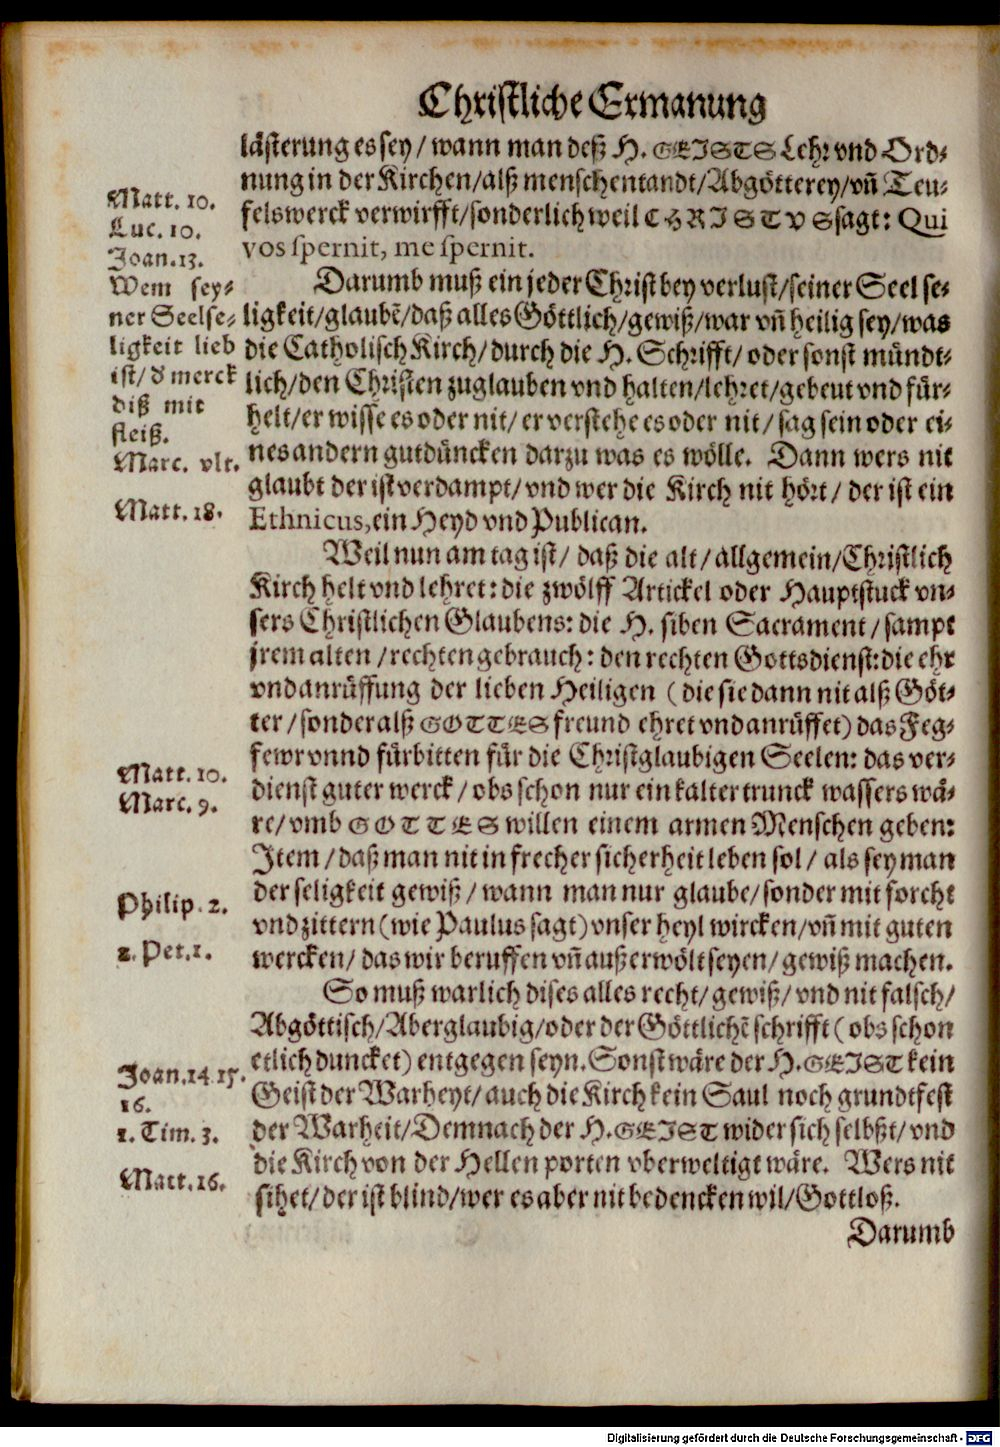 Christliche Ermanung
lästerung es sey / wann man deß H. GEISTS Lehr vnd Ord-
nung in der Kirchen / alß menschentandt / Abgötterey / vñ Teu-
felswerck verwirfft / sonderlich weil CHRISTVS sagt: Qui
vos spernit, me spernit.
Matt. 10.
Luc. 10.
Joan. 13.
Darumb muß ein jeder Christ bey verlust / seiner Seel se-
ligkeit / glaubẽ / daß alles Göttlich / gewiß / war vñ heilig sey / was
die Catholisch Kirch / durch die H. Schrifft / oder sonst mündt-
lich / den Christen zuglauben vnd halten / lehret / gebeut vnd für-
helt / er wisse es oder nit / er verstehe es oder nit / sag sein oder ei-
nes andern gutdüncken darzu was es wölle. Dann wers nit
glaubt der ist verdampt / vnd wer die Kirch nit hört / der ist ein
Ethnicus, ein Heyd vnd Publican.
Wem sey-
ner Seelse-
ligkeit lieb
ist / d' merck
diß mit
fleiß.
Marc. vlt.
Matt. 18.
Weil nun am tag ist / daß die alt / allgemein / Christlich
Kirch helt vnd lehret: die zwölff Artickel oder Hauptstuck vn-
sers Christlichen Glaubens: die H. siben Sacrament / sampt
jrem alten / rechten gebrauch: den rechten Gottsdienst: die ehr
vnd anrüffung der lieben Heiligen ( die sie dann nit alß Göt-
ter / sonder alß GOTTES freund ehret vnd anrüffet) das Feg-
fewr vnnd fürbitten für die Christglaubigen Seelen: das ver-
dienst guter werck / obs schon nur ein kalter trunck wassers wä-
re / vmb GOTTES willen einem armen Menschen geben:
Item / daß man nit in frecher sicherheit leben sol / als sey man
der seligkeit gewiß / wann man nur glaube / sonder mit forcht
vnd zittern (wie Paulus sagt) vnser heyl wircken / vñ mit guten
wercken / das wir beruffen vñ außerwölt seyen / gewiß machen.
Matt. 10.
Marc. 9.
Philip. 2.
2. Pet. 1.
So muß warlich dises alles recht / gewiß / vnd nit falsch /
Abgöttisch / Aberglaubig / oder der Göttlichẽ schrifft ( obs schon
etlich duncket) entgegen seyn. Sonst wäre der H. GEIST kein
Geist der Warheyt / auch die Kirch kein Saul noch grundtfest
der Warheit / Demnach der H. GEIST wider sich selbßt / vnd
die Kirch von der Hellen porten vberweltigt wäre. Wers nit
sihet / der ist blind / wer es aber nit bedencken wil / Gottloß.
Joan. 14. 15.
16.
1. Tim. 3.
Matt. 16.
Darumb
Digitalisierung gefördert durch die Deutsche Forschungsgemeinschaft - DFG